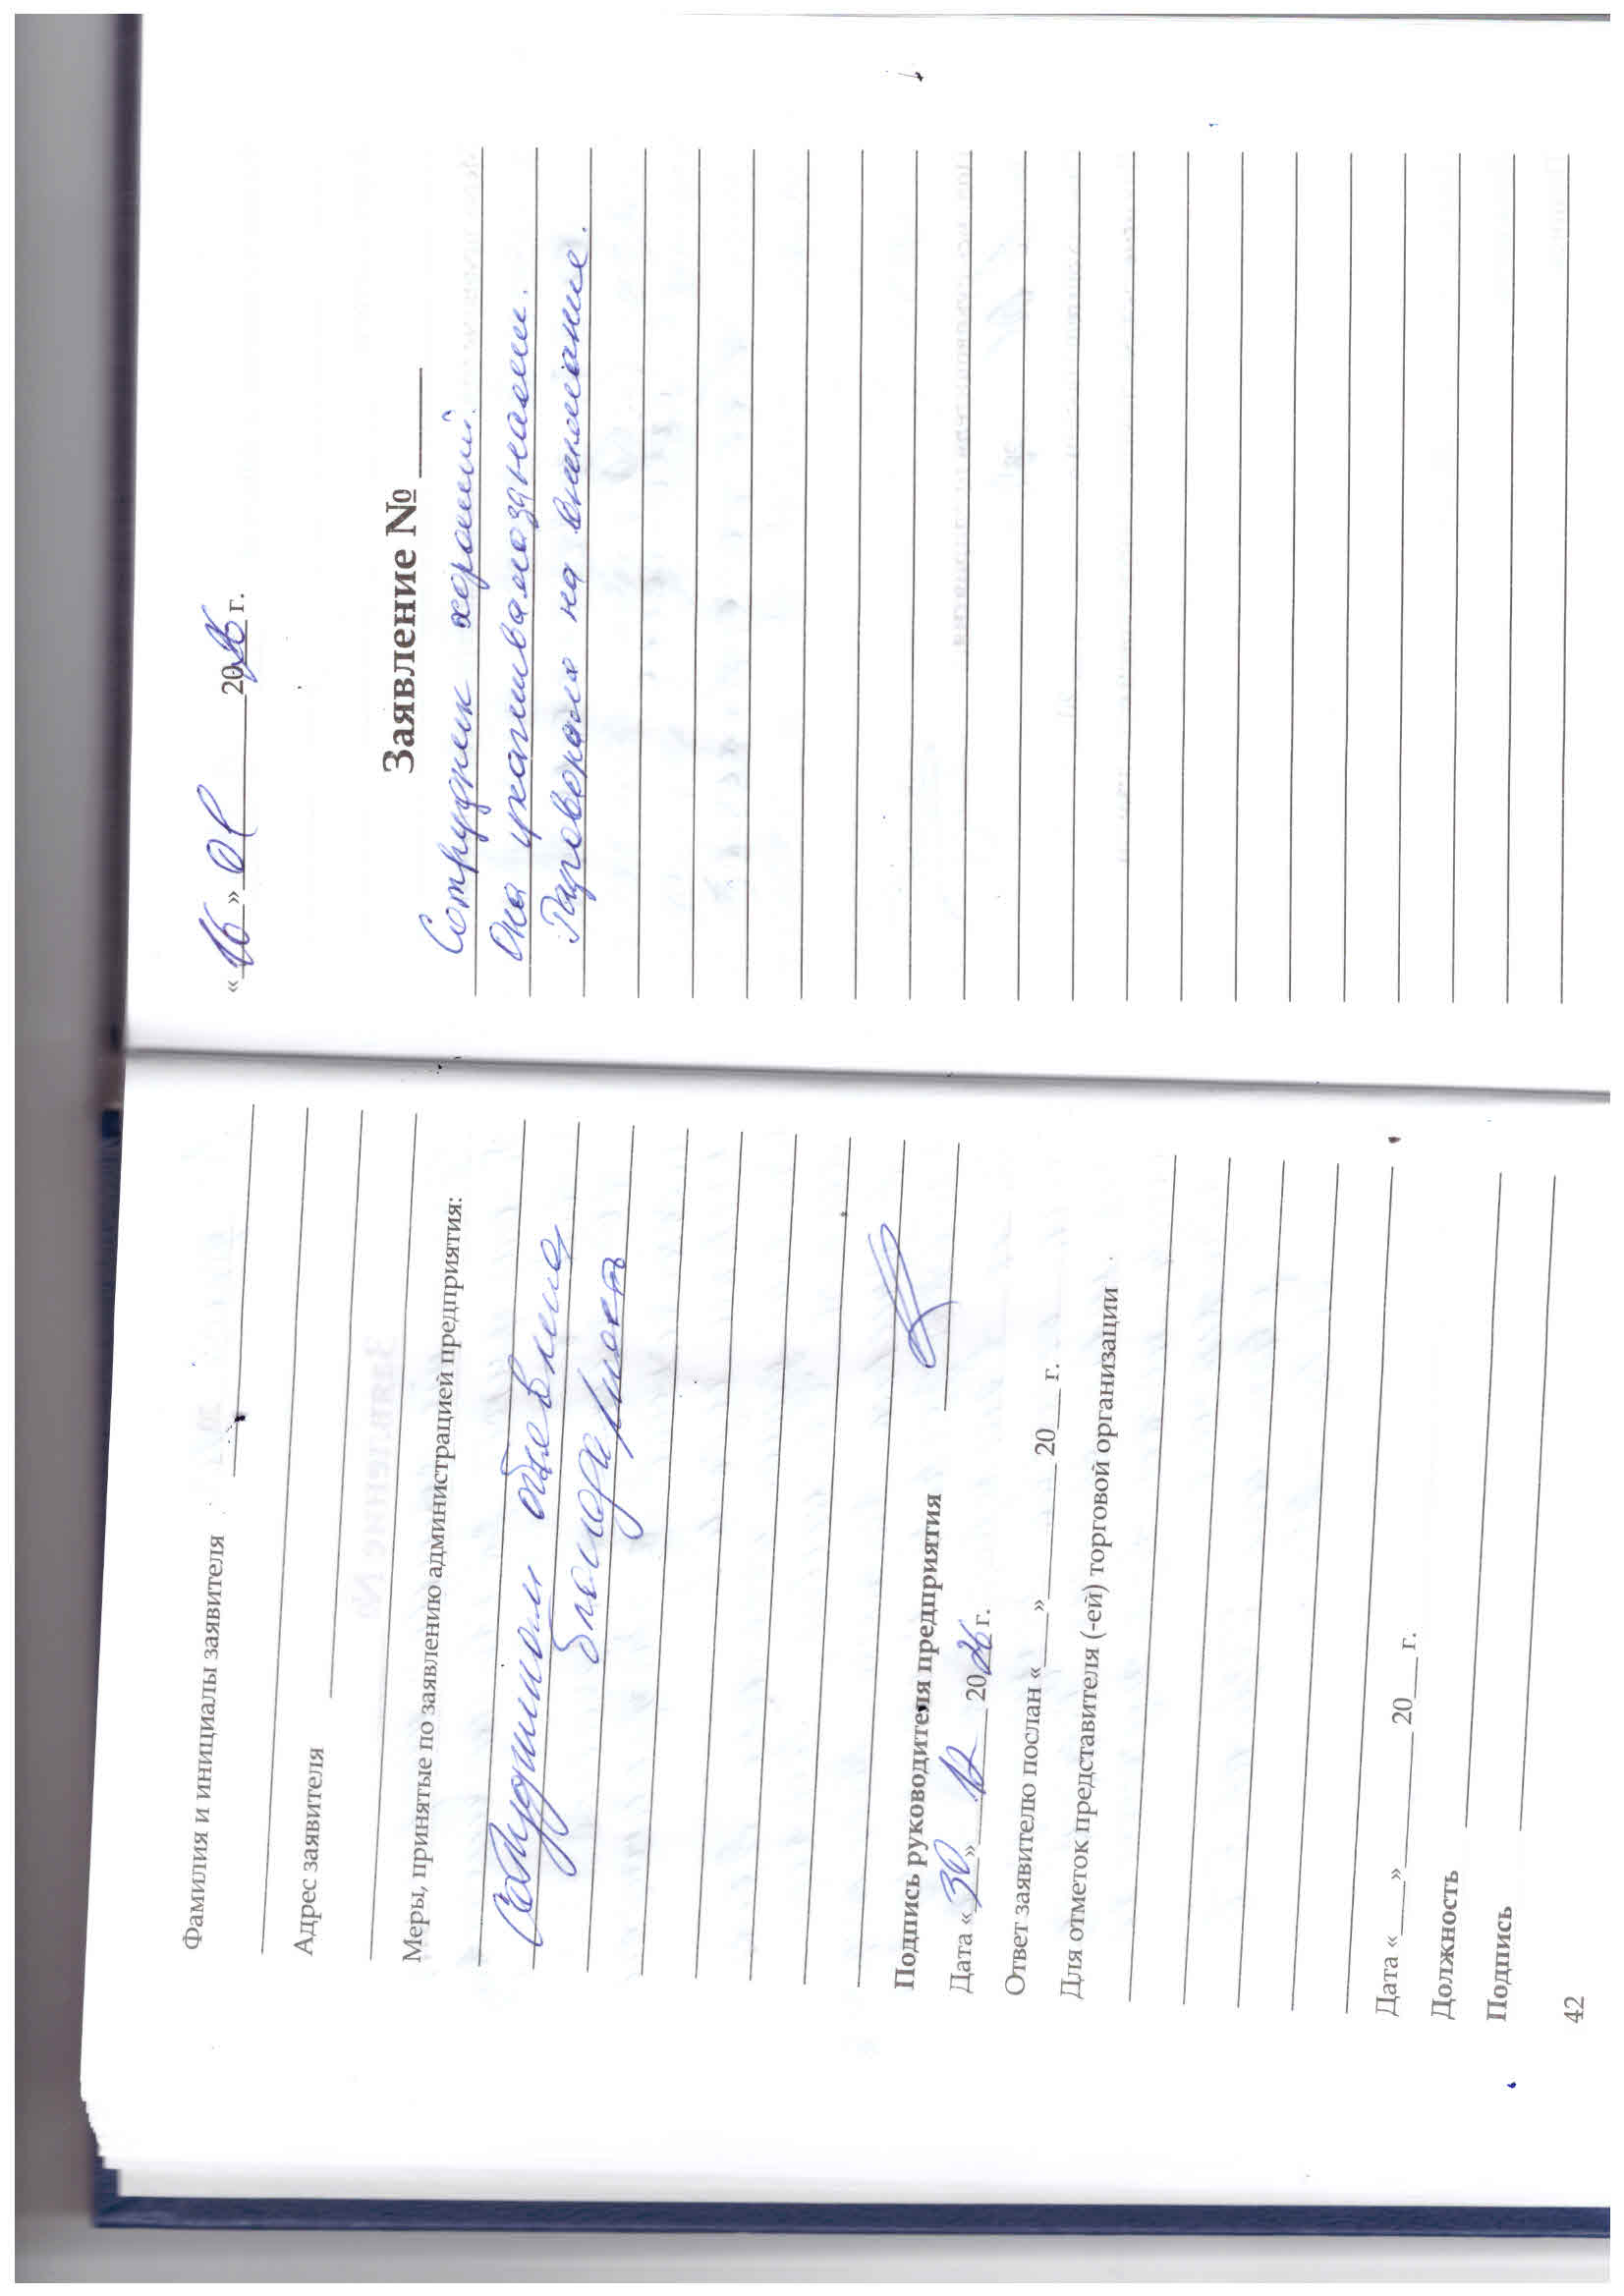 Фамилия и инициалы заявителя
Адрес заявителя
Меры, принятые по заявлению администрацией предприятия:
объявлена
благодарность
Подпись руководителя предприятия
Дата «30» 12 2026 г.
Ответ заявителю послан «___»______ 20___ г.
Для отметок представителя (-ей) торговой организации
Дата «___»______ 20___ г.
Должность
Подпись
42
«16» 01 2026 г.
Заявление №
Сотрудник хороший.
Она
на внимание.